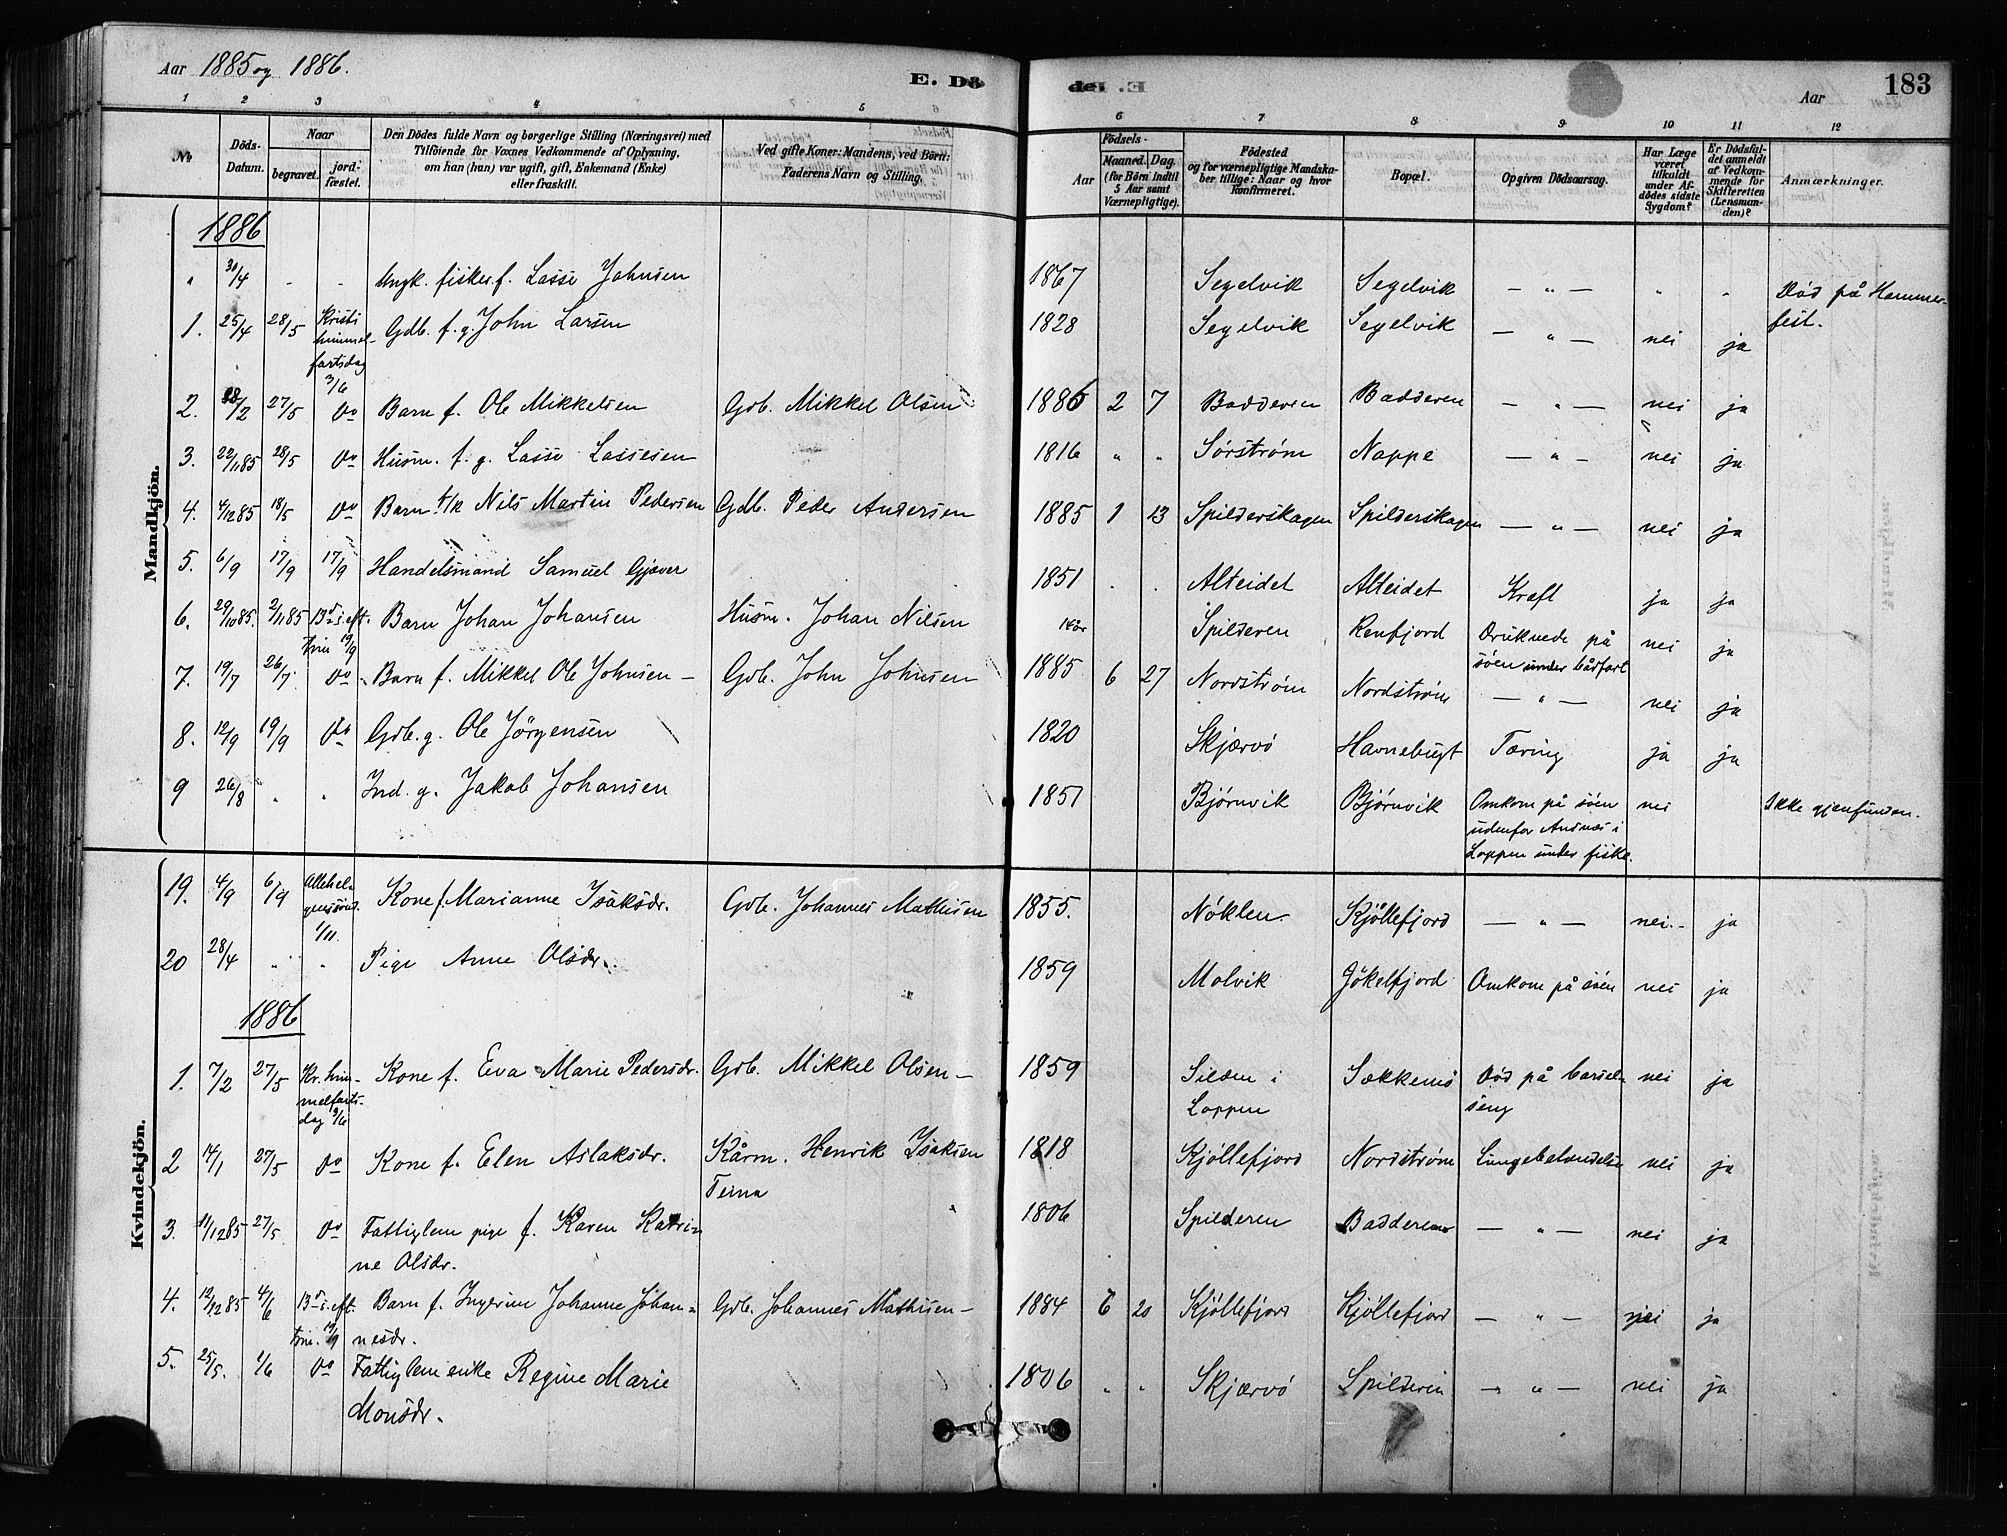 Aar 1885 og 1886.
E. Dö
E. Döde
Aar
183
1 2 3 4 5 6 7 8 9 10 11 12
No
Döds-Datum.
Naar
begravet.
jord-fæstet.
Den Dödes fulde Navn og borgerlige Stilling (Næringsvei) med Tilföiende for Voxnes Vedkommende af Oplysning, om han (hun) var ugift, gift, Enkemand (Enke) eller fraskilt.
Ved gifte Koner: Mandens, ved Börn: Faderens Navn og Stilling.
Födsels-
Aar
Maaned. Dag.
(for Börn indtil 5 Aar samt Værnepligtige).
Födested og for værnepligtige Mandskaber tillige: Naar og hvor Konfirmeret.
Bopæl.
Opgiven Dödsaarsag.
Har Læge været tilkaldt under Afdödes sidste Sygdom?
Er Dödsfaldet anmeldt af Vedkommende for Skifteretten (Lensmanden)?
Anmærkninger.
Mandkjön.
1886
" 30/4 - - Ungk. fisker f. Lasse Johnsen 1867 Segelvik Segelvik — " — " " Död på Hammerfest.
1. 25/4 28/5 Kristi himmelfartsdag 3/6 Gdb. f. g. John Larsen 1828 Segelvik Segelvik — " — nei ja
2. 28/2 27/5 Do Barn f. Ole Mikkelsen Gdb. Mikkel Olsen 1886 2 7 Badderen Badderen — " — nei ja
3. 22/11 85 28/5 Do Husm. f. g. Lasse Lassesen 1816 " " Sørstrøm Nappe — " — nei ja
4. 4/12 85 18/5 Do Barn f/k Nils Martin Pedersen Gdb. Peder Andersen 1885 1 13 Spilderskagen Spilderskagen — " — nei ja
5. 6/9 17/9 17/9 Handelsmand Samuel Gjæver 1851 . . Alteidet Alteidet Kræft ja ja
6. 29/10 85. 2/11 85 13de s. eft. Trin 19/9 Barn Johan Johansen Husm. Johan Nilsen Spilderen Renfjord Druknede på söen under bådfart nei ja
7. 19/7 26/7 Do Barn f. Mikkel Ole Johnsen — Gdb. John Johnsen 1885 6 27 Nordström Nordström — " — nei ja
8. 12/9 19/9 Do Gdb. g. Ole Jörgensen 1820 Skjærvö Havnebugt Tæring ja ja
9 26/8 " " Ind. g. Jakob Johansen 1851 Bjørnvik Bjørnvik Omkom på söen udenfor Andnes i Loppen under fiske. nei Ikke gjenfunden.
Kvindekjön.
19. 4/9 6/9 Allehelgenssönd. 1/11. Kone f. Marianne Isaksdr. Gdb. Johannes Mathisen 1855. Nöklen Kjöllefjord — " — nei.- ja
20 28/4 " " Pige Anne Olsdr. 1859 Molvik Jökelfjord Omkom på söen nei ja
1886
1. 7/2 27/5 Kr. himmelfartsdag 3/6 Kone f. Eva Marie Pedersdr. Gdb. Mikkel Olsen — 1859 Silden i Loppen Sækkemo Död på barselseng nei ja
2 14/1 27/5 Do Kone f. Elen Aslaksdr. Kårm. Henrik Isaksen Teina 1818 Kjöllefjord Nordström Lungebetændelse nei ja
3. 11/12 85 27/5 Do Fattiglem pige f. Karen Katrine Olsdr. 1806 Spilderen Badderen — " — nei ja
4. 12/12 85 4/6 13de s. eft. trin. 19/9 Barn f. Ingerine Johanne Johannesdr. Gdb. Johannes Mathisen — 1884 6 20 Kjöllefjord Kjöllefjord — " — nei ja
5. 25/5. 1/6 Do Fattiglem enke Regine Marie Monsdr. 1806 " " Skjærvö Spilderen — " — nei ja